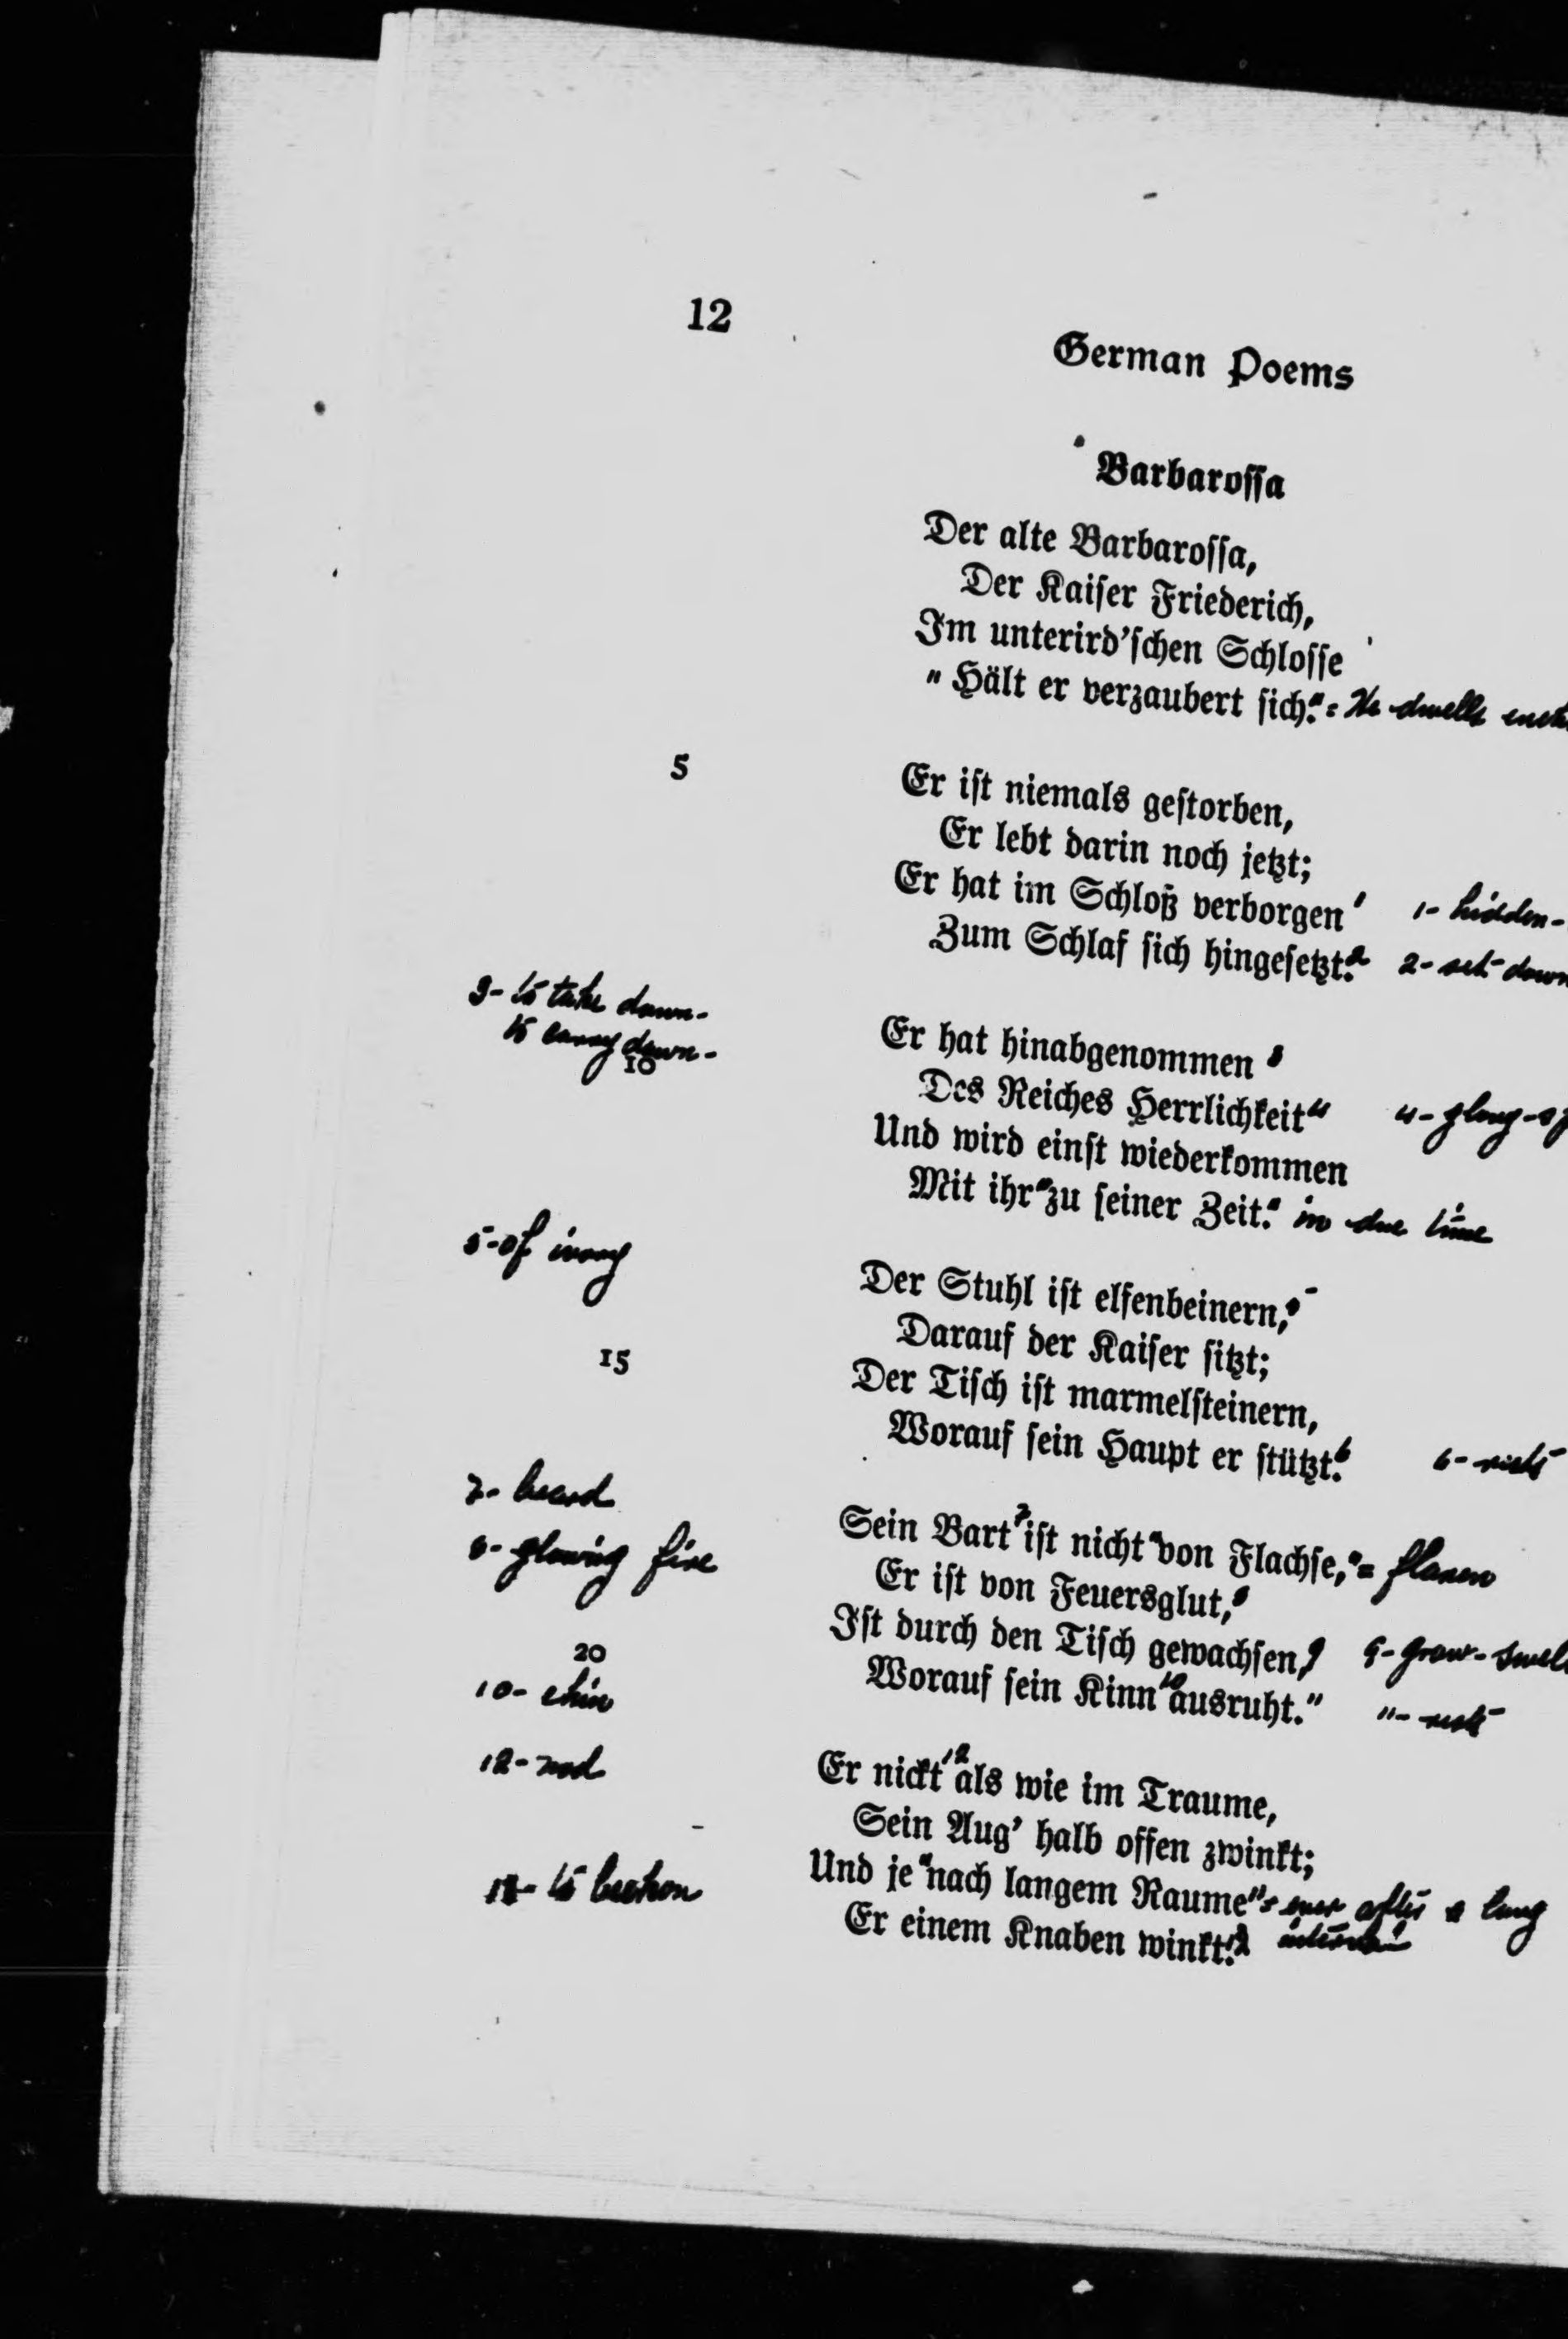 12
German Poems
Barbarossa
Der alte Barbarossa,
Der Kaiser Friederich,
Im unterird'schen Schlosse
" Hält er verzaubert sich." = He dwells
5
Er ist niemals gestorben,
Er lebt darin noch jetzt;
Er hat im Schloß verborgen 1 1- hidden-
Zum Schlaf sich hingesetzt.2 2- set down
3- to take down-
to carry down-
Er hat hinabgenommen 3
10
Des Reiches Herrlichkeit 4 4- glory-
Und wird einst wiederkommen
Mit ihr "zu seiner Zeit." in due time
5- of ivory
Der Stuhl ist elfenbeinern,5
Darauf der Kaiser sitzt;
15
Der Tisch ist marmelsteinern,
Worauf sein Haupt er stützt.6 6- rests
7- beard
Sein Bart 7 ist nicht "von Flachse," = flaxen
8- glowing fire
Er ist von Feuersglut,8
Ist durch den Tisch gewachsen,9 9- grow-
20
Worauf sein Kinn 10 ausruht.11 11- rests
10- chin
12- nod
Er nickt 12 als wie im Traume,
Sein Aug' halb offen zwinkt;
Und je "nach langem Raume" = ever after a long
interval
13- to beckon
Er einem Knaben winkt.13